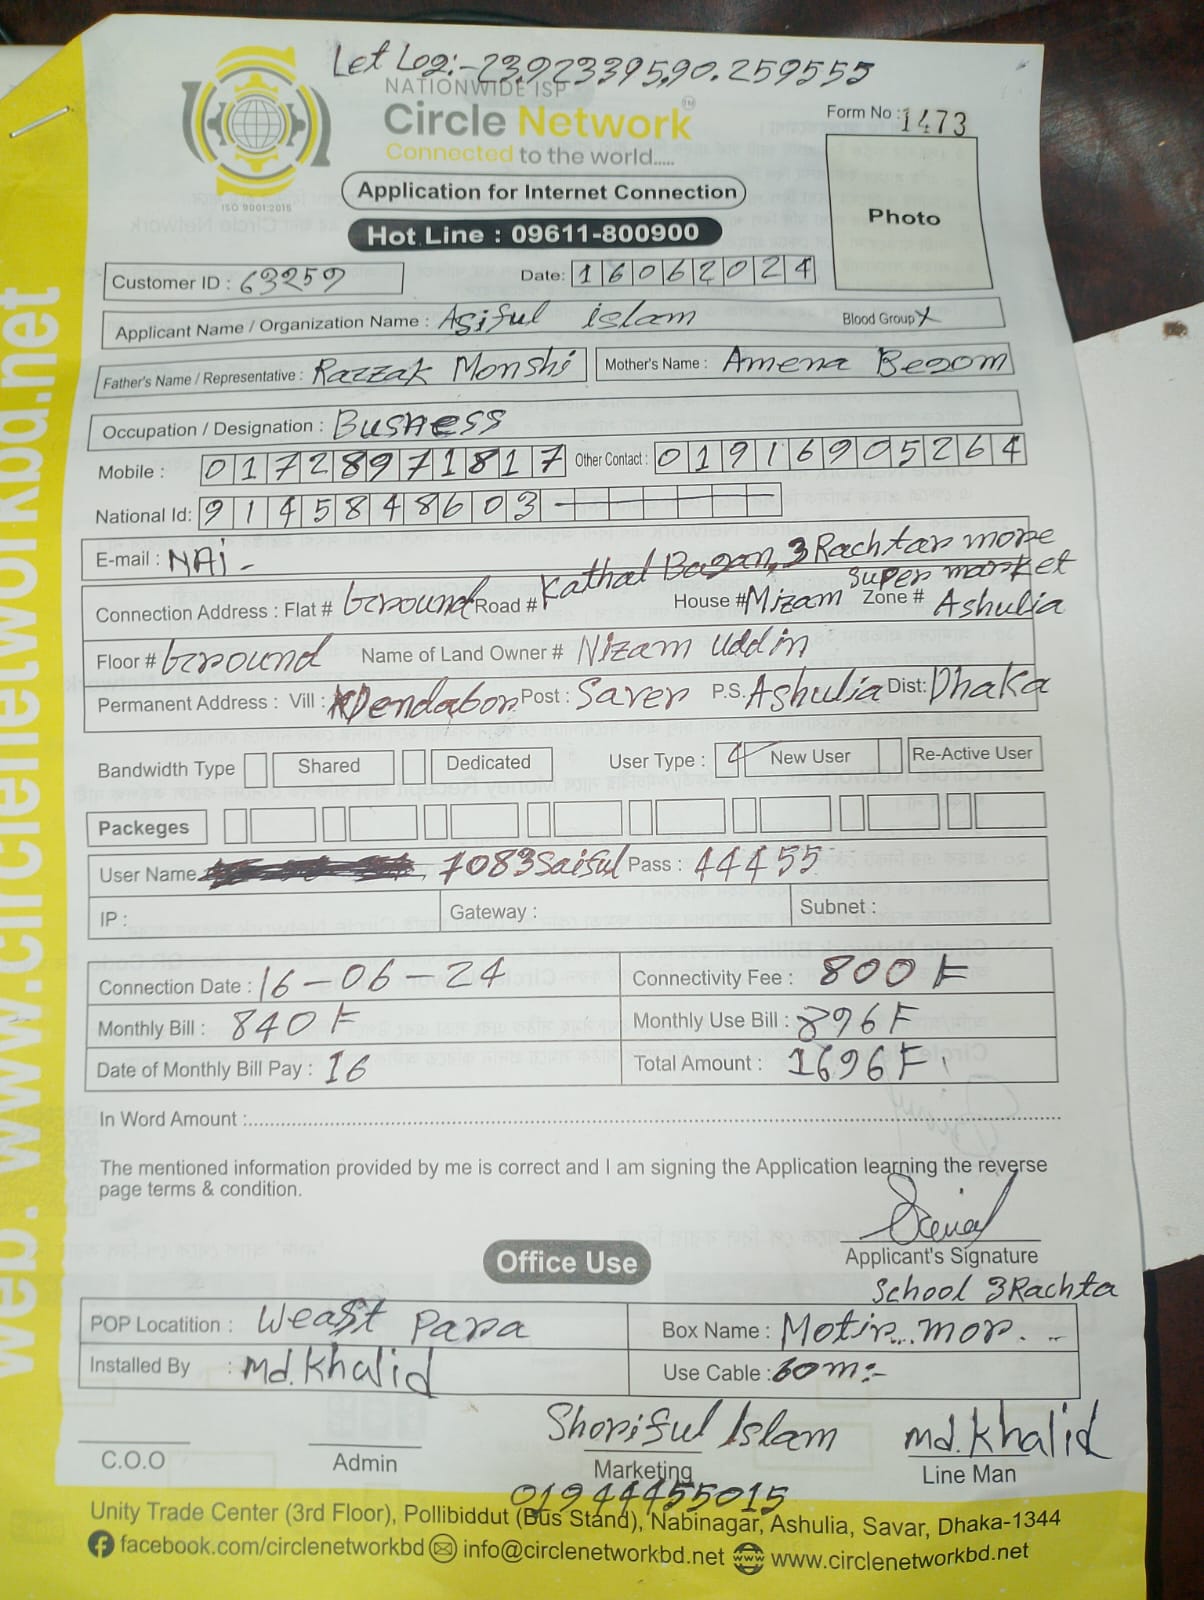 Let Log:-23.923395,90.259555
NATIONWIDE ISP
Circle Network TM
Connected to the world.....
ISO 9001:2015
Form No : 1473
Photo
Application for Internet Connection
Hot Line : 09611-800900
Customer ID : 63259 Date: 16062024
Applicant Name / Organization Name : Asiful islam Blood Group X
Father's Name / Representative : Razzak Monshi Mother's Name : Amena Begom
Occupation / Designation : Busness
Mobile : 01728971817 Other Contact : 01916905264
National Id: 9145848603
E-mail : NAi -
Connection Address : Flat # Ground Road # Kathal Bagan, 3 Rachtar more House # Mizam super market Zone # Ashulia
Floor # Ground Name of Land Owner # Nizam uddin
Permanent Address : Vill : Dendabor Post : Saver P.S. Ashulia Dist: Dhaka
Bandwidth Type Shared Dedicated User Type : New User Re-Active User
Packeges
User Name 7083Saiful Pass : 44455
IP : Gateway : Subnet :
Connection Date : 16-06-24 Connectivity Fee : 800 F
Monthly Bill : 840 F Monthly Use Bill : 896 F
Date of Monthly Bill Pay : 16 Total Amount : 1696 F
In Word Amount :
The mentioned information provided by me is correct and I am signing the Application learning the reverse
page terms & condition.
Applicant's Signature
Office Use
School 3Rachta
POP Locatition : Weast Para Box Name : Motir... mor. ..
Installed By : Md. Khalid Use Cable : 60m:-
Shoriful Islam md. Khalid
C.O.O Admin Marketing Line Man
01944455015
Unity Trade Center (3rd Floor), Pollibiddut (Bus Stand), Nabinagar, Ashulia, Savar, Dhaka-1344
facebook.com/circlenetworkbd info@circlenetworkbd.net www.circlenetworkbd.net
web : www.circlenetworkbd.net